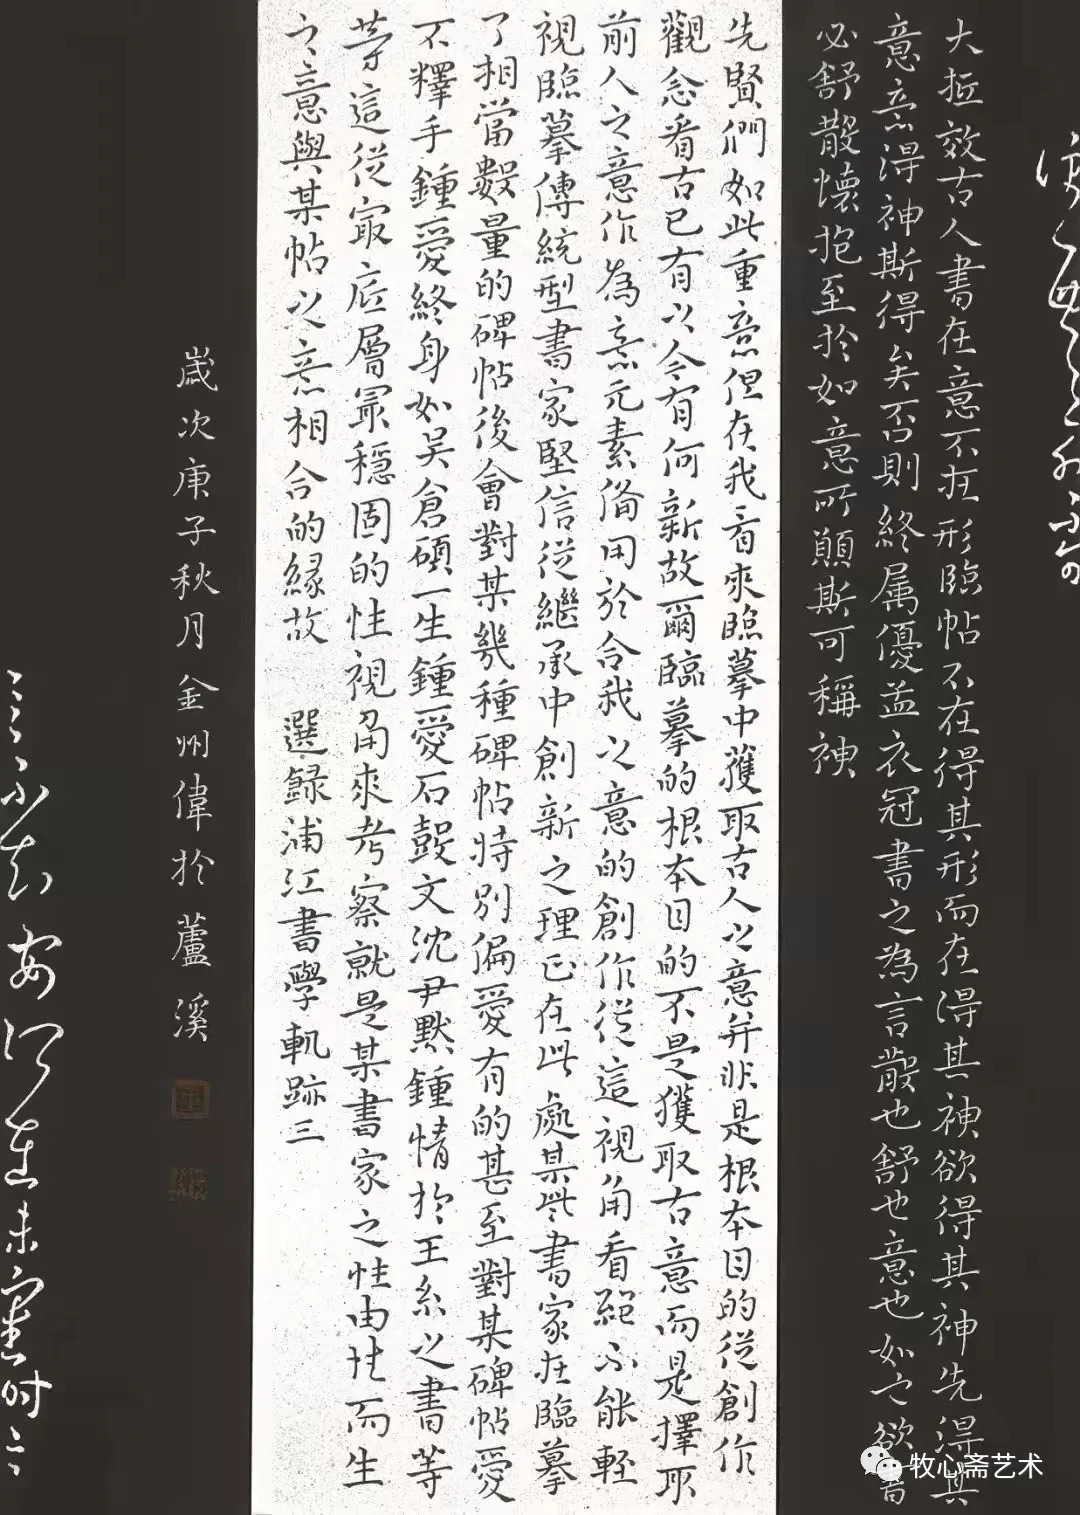 大抵效古人書在意不在形臨帖不在得其形而在得其神欲得其神先得其
意意得神斯得矣否則終属優孟衣冠書之為言散也舒也意也如也欲書
必舒散懷抱至於如意所願斯可稱神
先賢們如此重意但在我看來臨摹中獲取古人之意并非是根本目的從創作
觀念看古已有以今有何新故爾臨摹的根本目的不是獲取古意而是擇取
前人之意作為意元素備用於合我之意的創作從這視角看絕不能輕
視臨摹傳統型書家堅信從繼承中創新之理正在此處某些書家在臨摹
了相當數量的碑帖後會對某幾種碑帖特別偏愛有的甚至對某碑帖愛
不釋手鍾愛終身如吴倉碩一生鍾愛石鼓文沈尹默鍾情於王系之書等
等這從最底層最穩固的性視角來考察就是某書家之性由性而生
之意與某帖之意相合的緣故 選録浦江書學軌跡三
歲次庚子秋月金州偉於蘆溪
牧心斋艺术